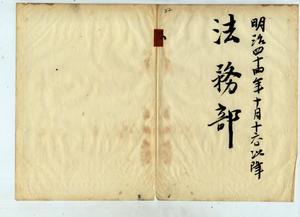 明治四十四年十月十六日以降
法務部